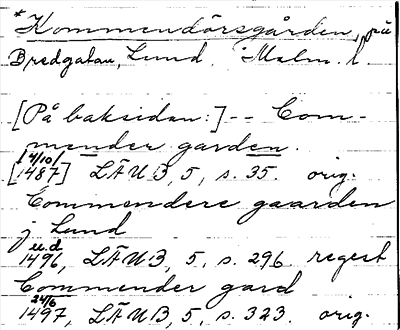 * Kommendörsgården, på
Bredgatan, Lund. Malm. l.
[På baksidan:] -- Com-
mender garden.
14/10
[1487] LÄUB, 5, s. 35. orig.
Commendere gaarden
j Lund
u.d
1496, LÄUB, 5, s. 296. regest
Commender gard
24/6
1497, LÄUB, 5, s. 323. orig.